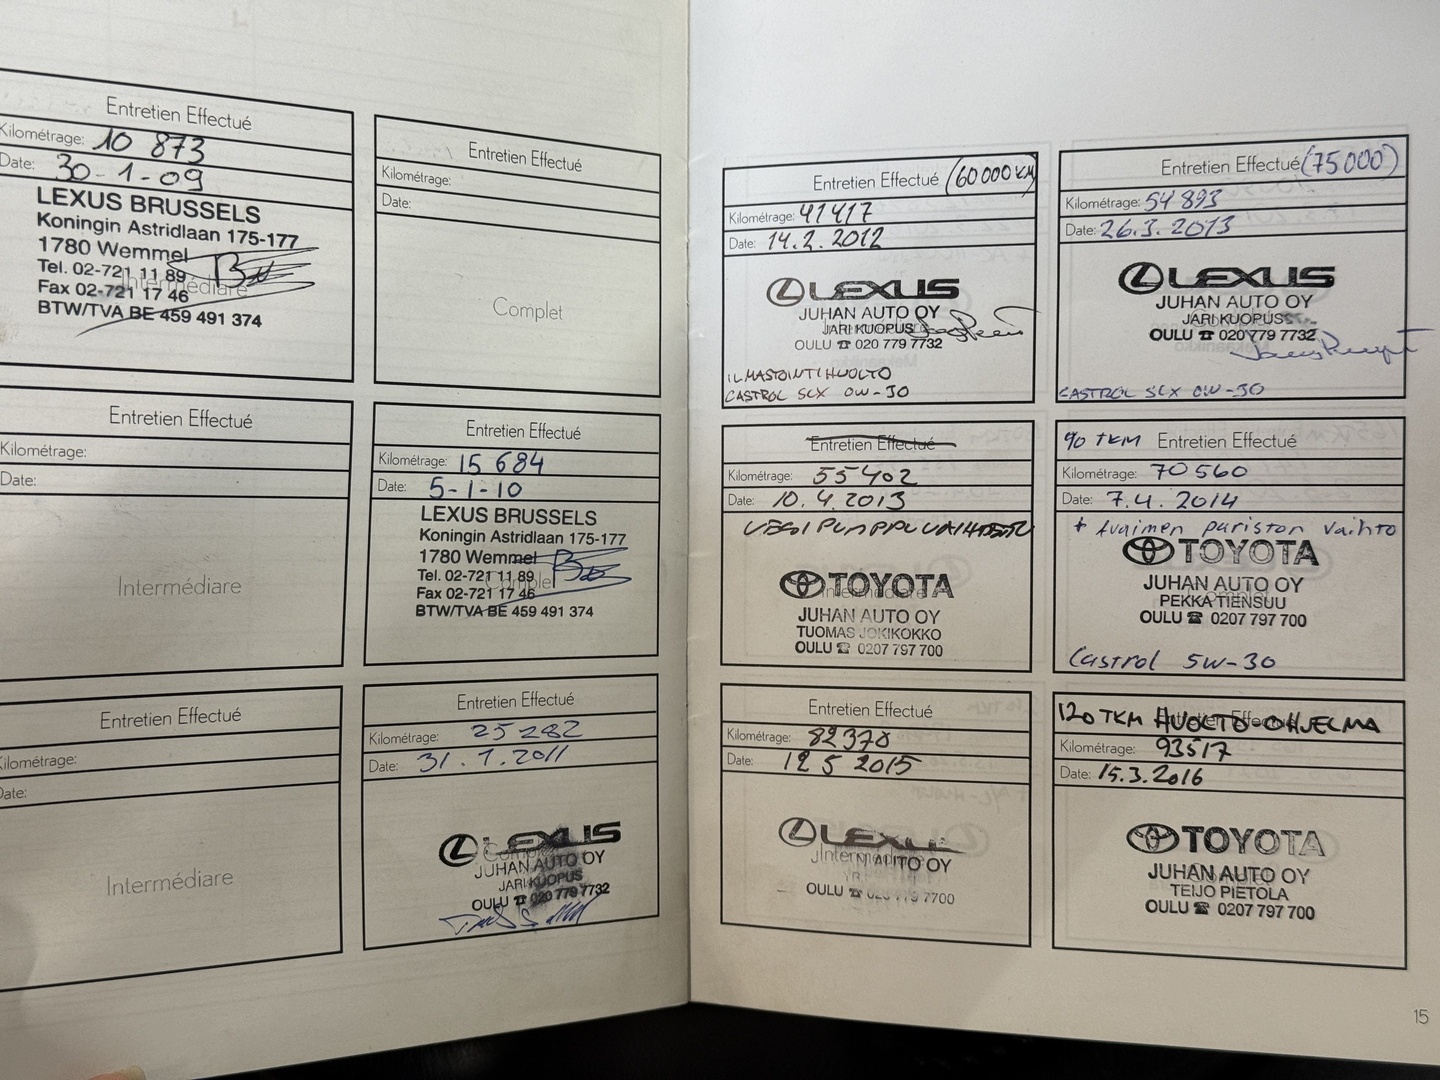 Entretien Effectué
Kilométrage: 10 873
Date: 30-1-09
LEXUS BRUSSELS
Koningin Astridlaan 175-177
1780 Wemmel
Tel. 02-721 11 89
Intermédiare
Fax 02-721 17 46
BTW/TVA BE 459 491 374
Entretien Effectué
Kilométrage:
Date:
Complet
Entretien Effectué
Kilométrage:
Date:
Intermédiare
Entretien Effectué
Kilométrage: 15 684
Date: 5-1-10
LEXUS BRUSSELS
Koningin Astridlaan 175-177
1780 Wemmel
Tel. 02-721 11 89
Complet
Fax 02-721 17 46
BTW/TVA BE 459 491 374
Entretien Effectué
Kilométrage:
Date:
Intermédiare
Entretien Effectué
Kilométrage: 25 282
Date: 31.1.2011
LEXUS
JUHAN AUTO OY
JARI KUOPUS
OULU ☎ 020 779 7732
Entretien Effectué (60000 KM)
Kilométrage: 41417
Date: 14.2.2012
LEXUS
JUHAN AUTO OY
JARI KUOPUS
OULU ☎ 020 779 7732
ILMASTOINTIHUOLTO
CASTROL SLX 0W-30
Entretien Effectué (75000)
Kilométrage: 54 893
Date: 26.3.2013
LEXUS
JUHAN AUTO OY
JARI KUOPUS
OULU ☎ 020 779 7732
CASTROL SLX 0W-30
Entretien Effectué
Kilométrage: 55402
Date: 10.4.2013
VESIPUMPPU VAIHDETTU
TOYOTA
Intermédiare
JUHAN AUTO OY
TUOMAS JOKIKOKKO
OULU ☎ 0207 797 700
90 TKM Entretien Effectué
Kilométrage: 70560
Date: 7.4.2014
+ Avaimen pariston vaihto
TOYOTA
JUHAN AUTO OY
PEKKA TIENSUU
OULU ☎ 0207 797 700
Castrol 5W-30
Entretien Effectué
Kilométrage: 82370
Date: 12 5 2015
LEXUS
AUTO OY
OULU ☎ 7700
120 TKM HUOLTO-OHJELMA
Entretien Effectué
Kilométrage: 93517
Date: 15.3.2016
TOYOTA
JUHAN AUTO OY
TEIJO PIETOLA
OULU ☎ 0207 797 700
15